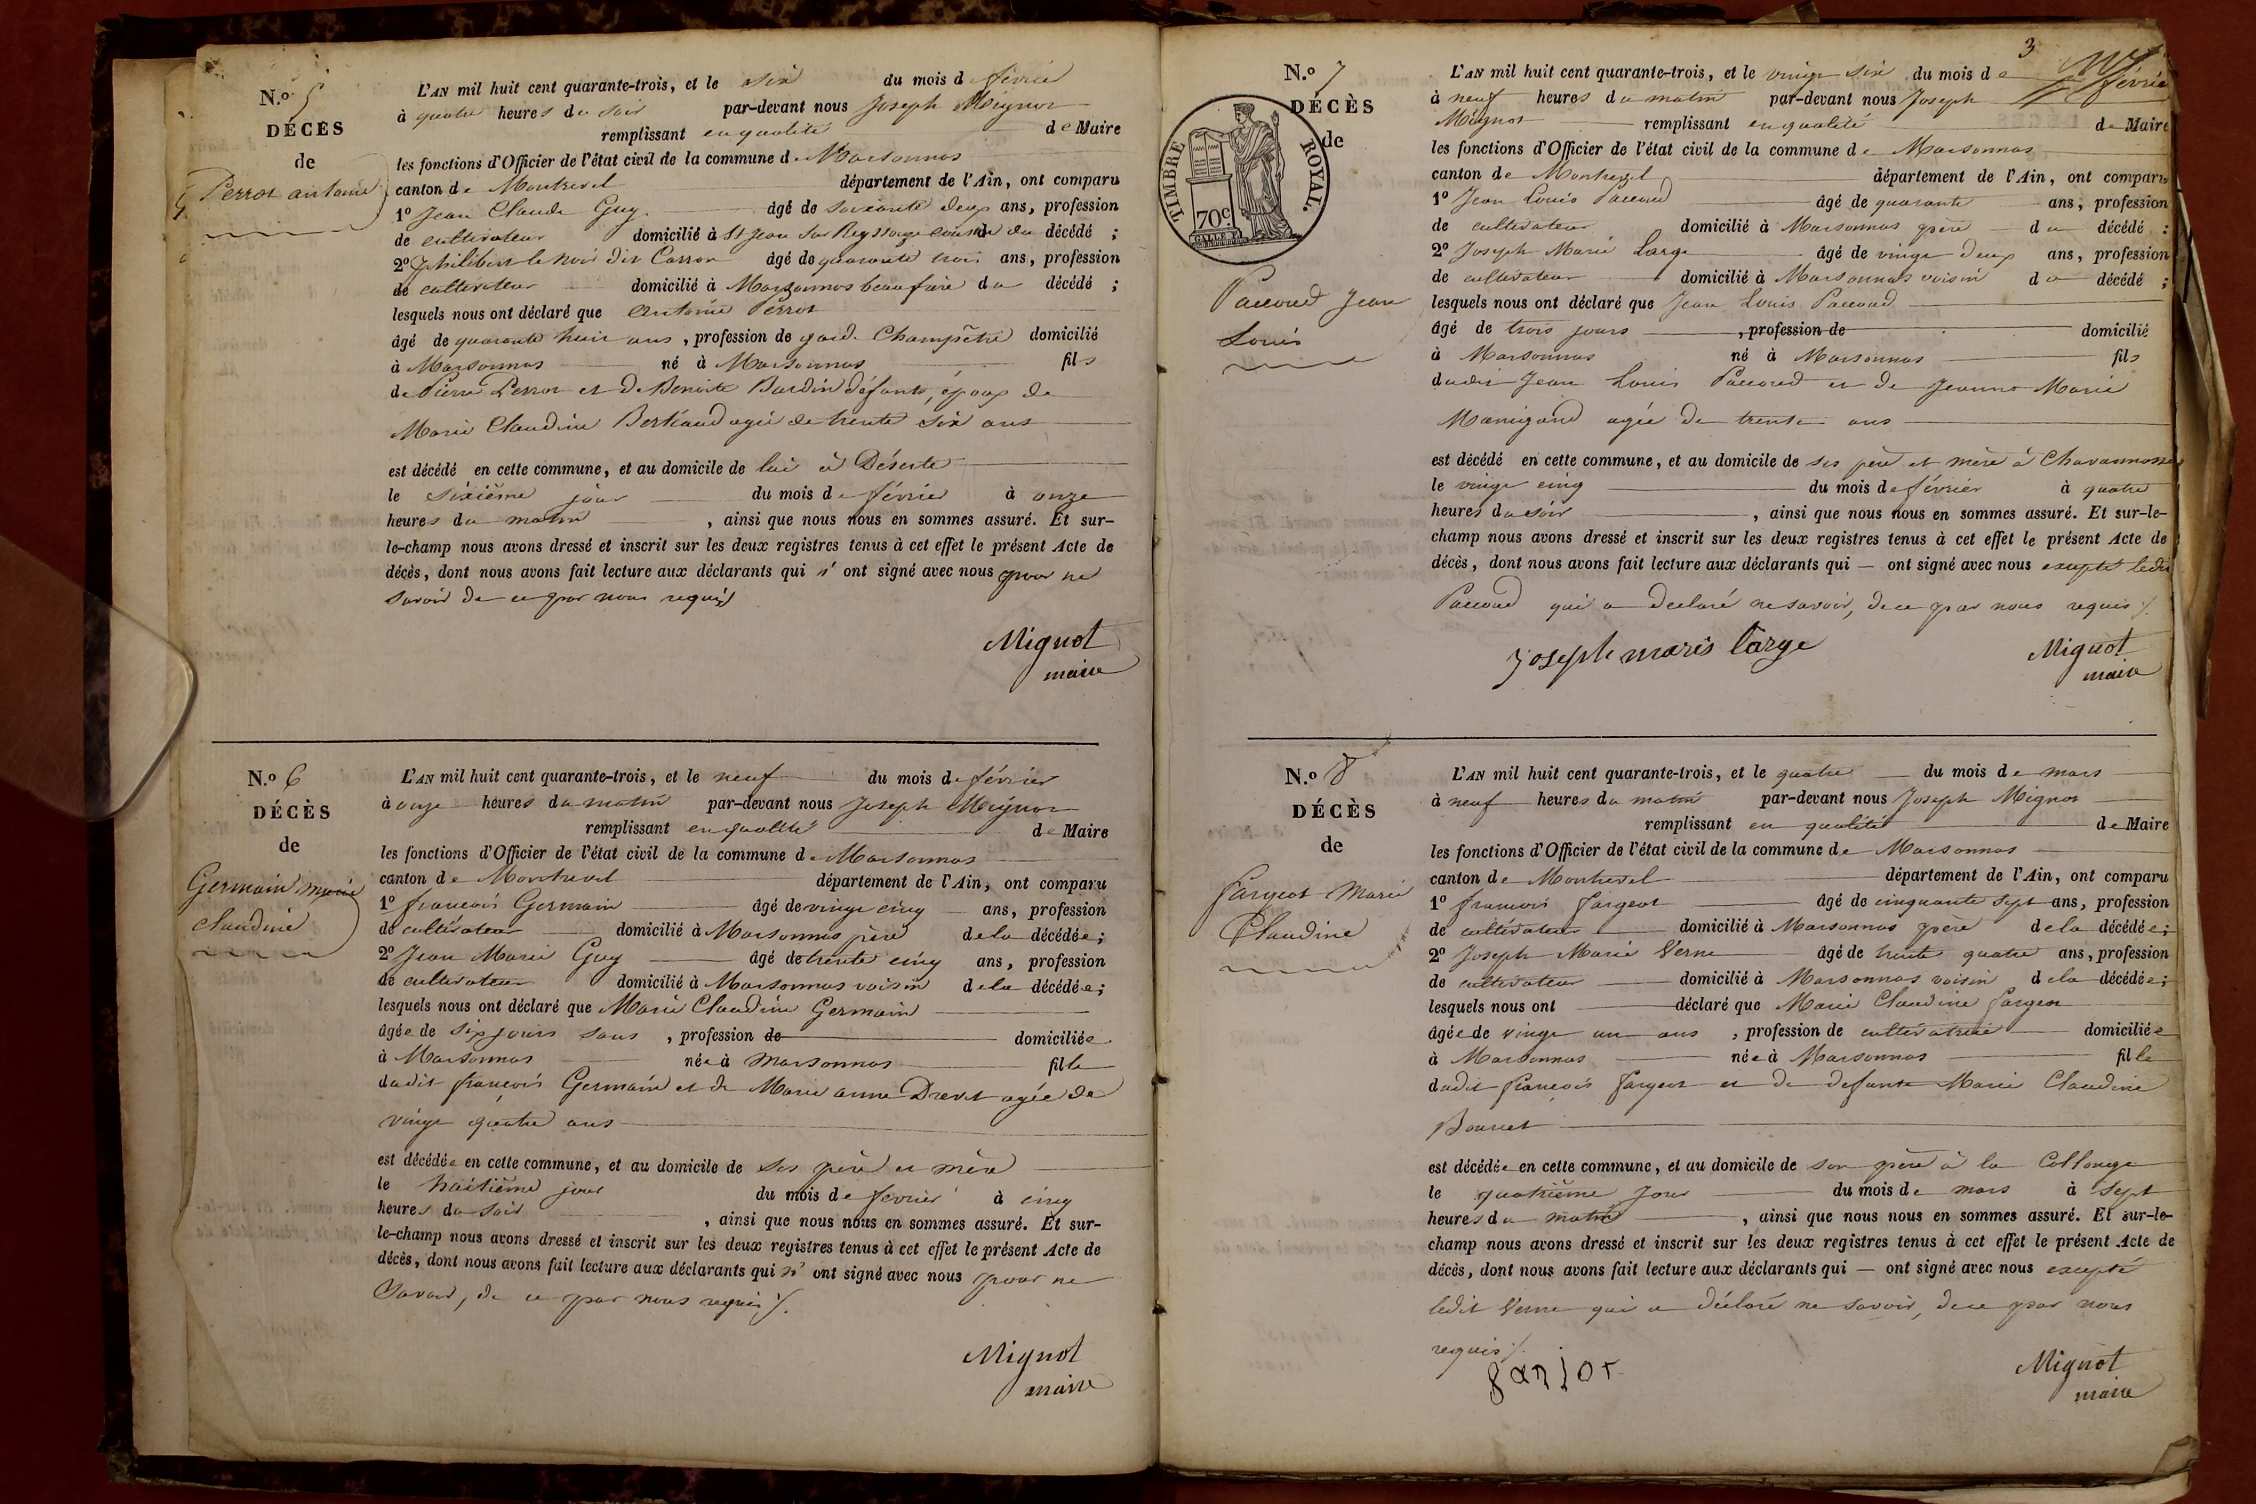 N.º 5
DÉCÈS
de
Perrot antoine
L'AN mil huit cent quarante-trois, et le six du mois de février
à quatre heures du soir par-devant nous Joseph Mignot
remplissant en qualité de Maire
les fonctions d'Officier de l'état civil de la commune de Marsonnas
canton de Montrevel département de l'Ain, ont comparu
1º Jean Claude Guy âgé de soixante deux ans, profession
de cultivateur domicilié à St Jean sur Reyssouze cousin du décédé ;
2º Philibert le noir dit Carron âgé de quarante trois ans, profession
de cultivateur domicilié à Marsonnas beaufrère du décédé ;
lesquels nous ont déclaré que Antoine Perrot
âgé de quarante huit ans, profession de gard. Champêtre domicilié
à Marsonnas né à Marsonnas fils
de Pierre Perrot et de Benoite Bardin défunts, époux de
Marie Claudine Bertheaud agée de trente six ans
est décédé en cette commune, et au domicile de lui à Déserte
le sixième jour du mois de février à onze
heures du matin, ainsi que nous nous en sommes assuré. Et sur-
le-champ nous avons dressé et inscrit sur les deux registres tenus à cet effet le présent Acte de
décès, dont nous avons fait lecture aux déclarants qui n' ont signé avec nous pour ne
savoir de ce par nous requis
Mignot
maire
N.º 6
DÉCÈS
de
Germain marie
claudine
L'AN mil huit cent quarante-trois, et le neuf du mois de février
à onze heures du matin par-devant nous Joseph Mignot
remplissant en qualité de Maire
les fonctions d'Officier de l'état civil de la commune de Marsonnas
canton de Montrevel département de l'Ain, ont comparu
1º françois Germain âgé de vingt cinq ans, profession
de cultivateur domicilié à Marsonnas père de la décédée ;
2º Jean Marie Guy âgé de trente cinq ans, profession
de cultivateur domicilié à Marsonnas voisin de la décédée ;
lesquels nous ont déclaré que Marie Claudine Germain
âgée de six jours sans, profession de domiciliée
à Marsonnas née à Marsonnas fille
dudit françois Germain et de Marie anne Drevet agée de
vingt quatre ans
est décédée en cette commune, et au domicile de ses père et mère
le huitième jour du mois de fevrier à cinq
heures du soir, ainsi que nous nous en sommes assuré. Et sur-
le-champ nous avons dressé et inscrit sur les deux registres tenus à cet effet le présent Acte de
décès, dont nous avons fait lecture aux déclarants qui n' ont signé avec nous pour ne
savoir, de ce par nous requis
Mignot
maire
3
N.º 7
DÉCÈS
de
TIMBRE ROYAL.
70c
Paccoud Jean
Louis
L'AN mil huit cent quarante-trois, et le vingt six du mois de février
à neuf heures du matin par-devant nous Joseph
Mignot remplissant en qualité de Maire
les fonctions d'Officier de l'état civil de la commune de Marsonnas
canton de Montrevel département de l'Ain, ont comparu
1º Jean Louis Paccoud âgé de quarante ans, profession
de cultivateur domicilié à Marsonnas père du décédé ;
2º Joseph Marie Large âgé de vingt deux ans, profession
de cultivateur domicilié à Marsonnas voisin du décédé ;
lesquels nous ont déclaré que Jean Louis Paccoud
âgé de trois jours, profession de domicilié
à Marsonnas né à Marsonnas fils
dudit Jean Louis Paccoud et de Jeanne Marie
Manigand agée de trente ans
est décédé en cette commune, et au domicile de ses père et mère à
le vingt cinq du mois de février à quatre
heures du soir, ainsi que nous nous en sommes assuré. Et sur-le-
champ nous avons dressé et inscrit sur les deux registres tenus à cet effet le présent Acte de
décès, dont nous avons fait lecture aux déclarants qui — ont signé avec nous excepté ledit
Paccoud qui a declaré ne savoir, de ce par nous requis
joseph maris large
Mignot
maire
N.º 8
DÉCÈS
de
fargeot Marie
Claudine
L'AN mil huit cent quarante-trois, et le quatre du mois de mars
à neuf heures du matin par-devant nous Joseph Mignot
remplissant en qualité de Maire
les fonctions d'Officier de l'état civil de la commune de Marsonnas
canton de Montrevel département de l'Ain, ont comparu
1º françois fargeot âgé de cinquante sept ans, profession
de cultivateur domicilié à Marsonnas père de la décédée ;
2º Joseph Marie Verne âgé de trente quatre ans, profession
de cultivateur domicilié à Marsonnas voisin de la décédée ;
lesquels nous ont déclaré que Marie Claudine fargeot
âgée de vingt un ans, profession de cultivatrice domiciliée
à Marsonnas née à Marsonnas fille
dudit françois fargeot et de defunte Marie Claudine
Bourcet
est décédée en cette commune, et au domicile de son père à la Collonge
le quatrième jour du mois de mars à sept
heures du matin, ainsi que nous nous en sommes assuré. Et sur-le-
champ nous avons dressé et inscrit sur les deux registres tenus à cet effet le présent Acte de
décès, dont nous avons fait lecture aux déclarants qui — ont signé avec nous excepté
ledit Verne qui a déclaré ne savoir, de ce par nous
requis
farjot
Mignot
maire